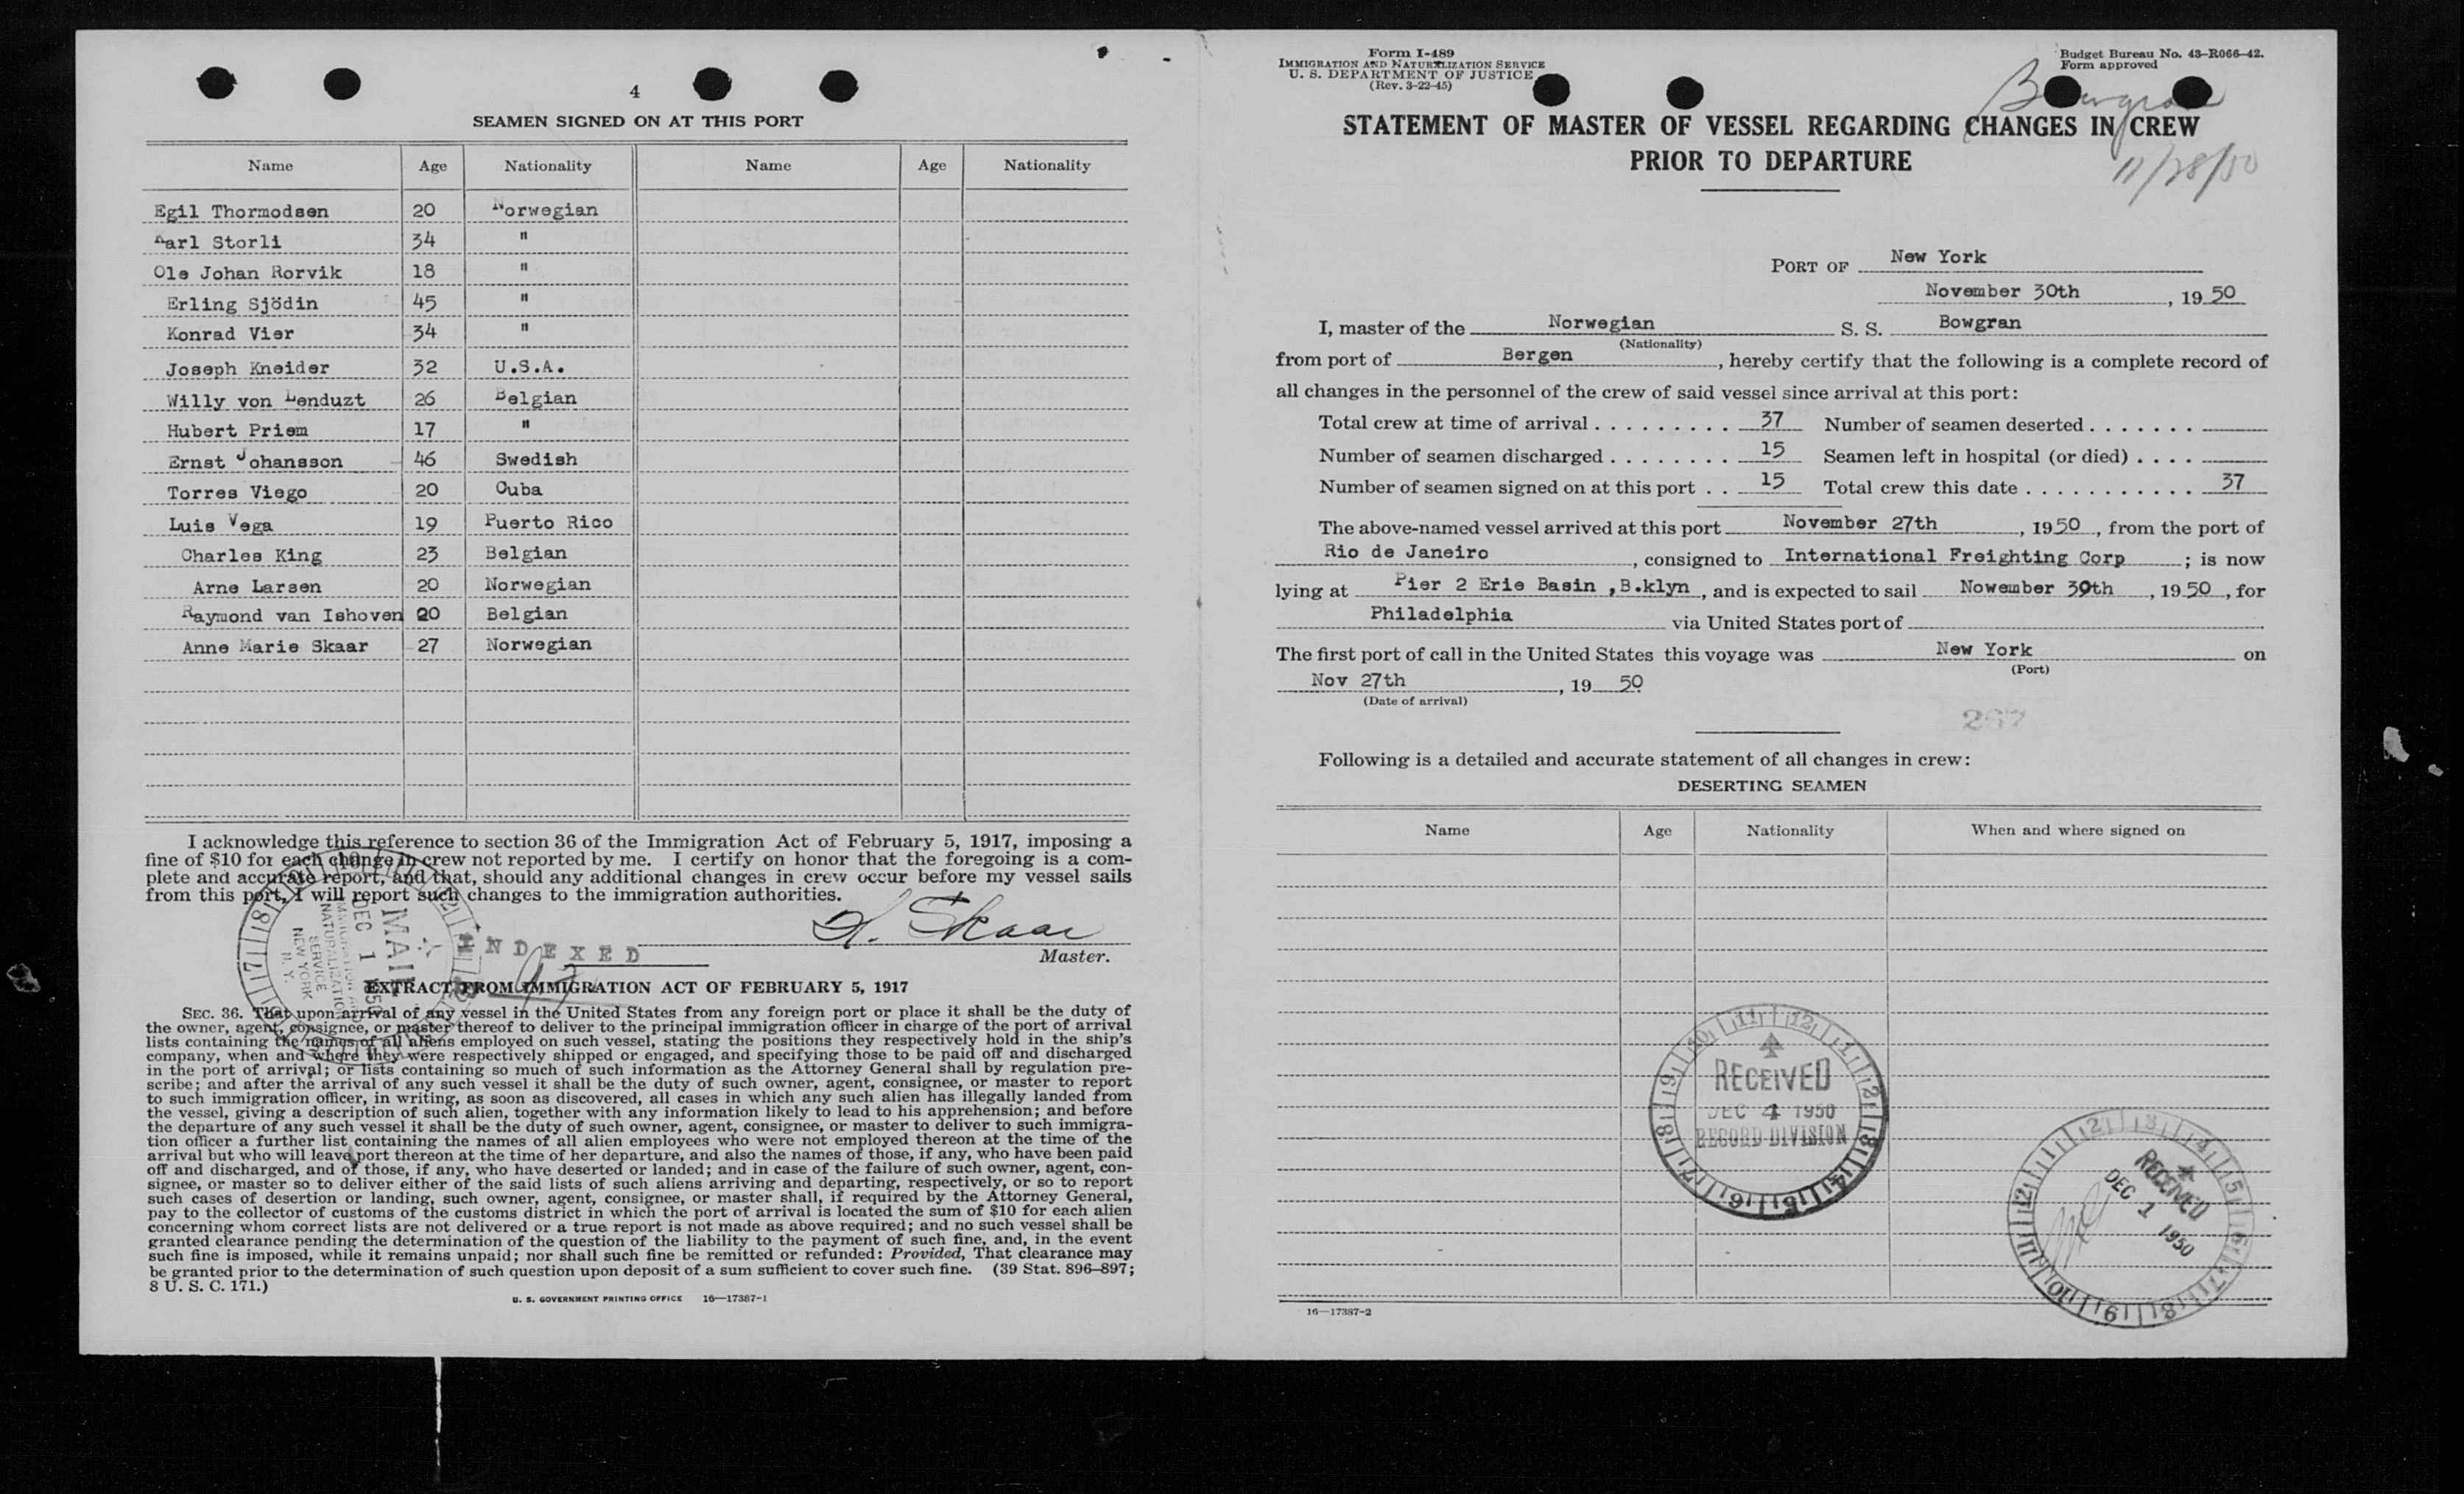 4
SEAMEN SIGNED ON AT THIS PORT
Name Age Nationality Name Age Nationality
Egil Thormodsen 20 Norwegian
Karl Storli 34 "
Ole Johan Rorvik 18 "
Erling Sjödin 45 "
Konrad Vier 34 "
Joseph Kneider 32 U.S.A.
Willy von Lenduzt 26 Belgian
Hubert Priem 17 "
Ernst Johansson 46 Swedish
Torres Viego 20 Cuba
Luis Vega 19 Puerto Rico
Charles King 23 Belgian
Arne Larsen 20 Norwegian
Raymond van Ishoven 20 Belgian
Anne Marie Skaar 27 Norwegian
I acknowledge this reference to section 36 of the Immigration Act of February 5, 1917, imposing a
fine of $10 for each change in crew not reported by me. I certify on honor that the foregoing is a com-
plete and accurate report, and that, should any additional changes in crew occur before my vessel sails
from this port, I will report such changes to the immigration authorities.
MAIL
DEC 1 1950
IMMIGRATION AND
NATURALIZATION
SERVICE
NEW YORK
N. Y.
INDEXED
Skaar
Master.
EXTRACT FROM IMMIGRATION ACT OF FEBRUARY 5, 1917
SEC. 36. That upon arrival of any vessel in the United States from any foreign port or place it shall be the duty of
the owner, agent, consignee, or master thereof to deliver to the principal immigration officer in charge of the port of arrival
lists containing the names of all aliens employed on such vessel, stating the positions they respectively hold in the ship's
company, when and where they were respectively shipped or engaged, and specifying those to be paid off and discharged
in the port of arrival; or lists containing so much of such information as the Attorney General shall by regulation pre-
scribe; and after the arrival of any such vessel it shall be the duty of such owner, agent, consignee, or master to report
to such immigration officer, in writing, as soon as discovered, all cases in which any such alien has illegally landed from
the vessel, giving a description of such alien, together with any information likely to lead to his apprehension; and before
the departure of any such vessel it shall be the duty of such owner, agent, consignee, or master to deliver to such immigra-
tion officer a further list containing the names of all alien employees who were not employed thereon at the time of the
arrival but who will leave port thereon at the time of her departure, and also the names of those, if any, who have been paid
off and discharged, and of those, if any, who have deserted or landed; and in case of the failure of such owner, agent, con-
signee, or master so to deliver either of the said lists of such aliens arriving and departing, respectively, or so to report
such cases of desertion or landing, such owner, agent, consignee, or master shall, if required by the Attorney General,
pay to the collector of customs of the customs district in which the port of arrival is located the sum of $10 for each alien
concerning whom correct lists are not delivered or a true report is not made as above required; and no such vessel shall be
granted clearance pending the determination of the question of the liability to the payment of such fine, and, in the event
such fine is imposed, while it remains unpaid; nor shall such fine be remitted or refunded: Provided, That clearance may
be granted prior to the determination of such question upon deposit of a sum sufficient to cover such fine. (39 Stat. 896–897;
8 U. S. C. 171.)
U. S. GOVERNMENT PRINTING OFFICE 16—17387-1
Form I-489
IMMIGRATION AND NATURALIZATION SERVICE
U. S. DEPARTMENT OF JUSTICE
(Rev. 3-22-45)
Budget Bureau No. 43-R066-42.
Form approved
Bowgran
11/28/50
STATEMENT OF MASTER OF VESSEL REGARDING CHANGES IN CREW
PRIOR TO DEPARTURE
PORT OF New York
November 30th, 1950
I, master of the Norwegian S. S. Bowgran
(Nationality)
from port of Bergen, hereby certify that the following is a complete record of
all changes in the personnel of the crew of said vessel since arrival at this port:
Total crew at time of arrival . . . . . . . . . 37 Number of seamen deserted . . . . . . .
Number of seamen discharged . . . . . . . . 15 Seamen left in hospital (or died) . . . .
Number of seamen signed on at this port . . 15 Total crew this date . . . . . . . . . . . 37
The above-named vessel arrived at this port November 27th, 1950, from the port of
Rio de Janeiro, consigned to International Freighting Corp; is now
lying at Pier 2 Erie Basin ,B.klyn, and is expected to sail Nowember 30th, 1950, for
Philadelphia via United States port of
The first port of call in the United States this voyage was New York on
(Port)
Nov 27th, 19 50
(Date of arrival)
267
Following is a detailed and accurate statement of all changes in crew:
DESERTING SEAMEN
Name Age Nationality When and where signed on
RECEIVED
DEC 4 1950
RECORD DIVISION
RECEIVED
DEC 1 1950
16—17387-2